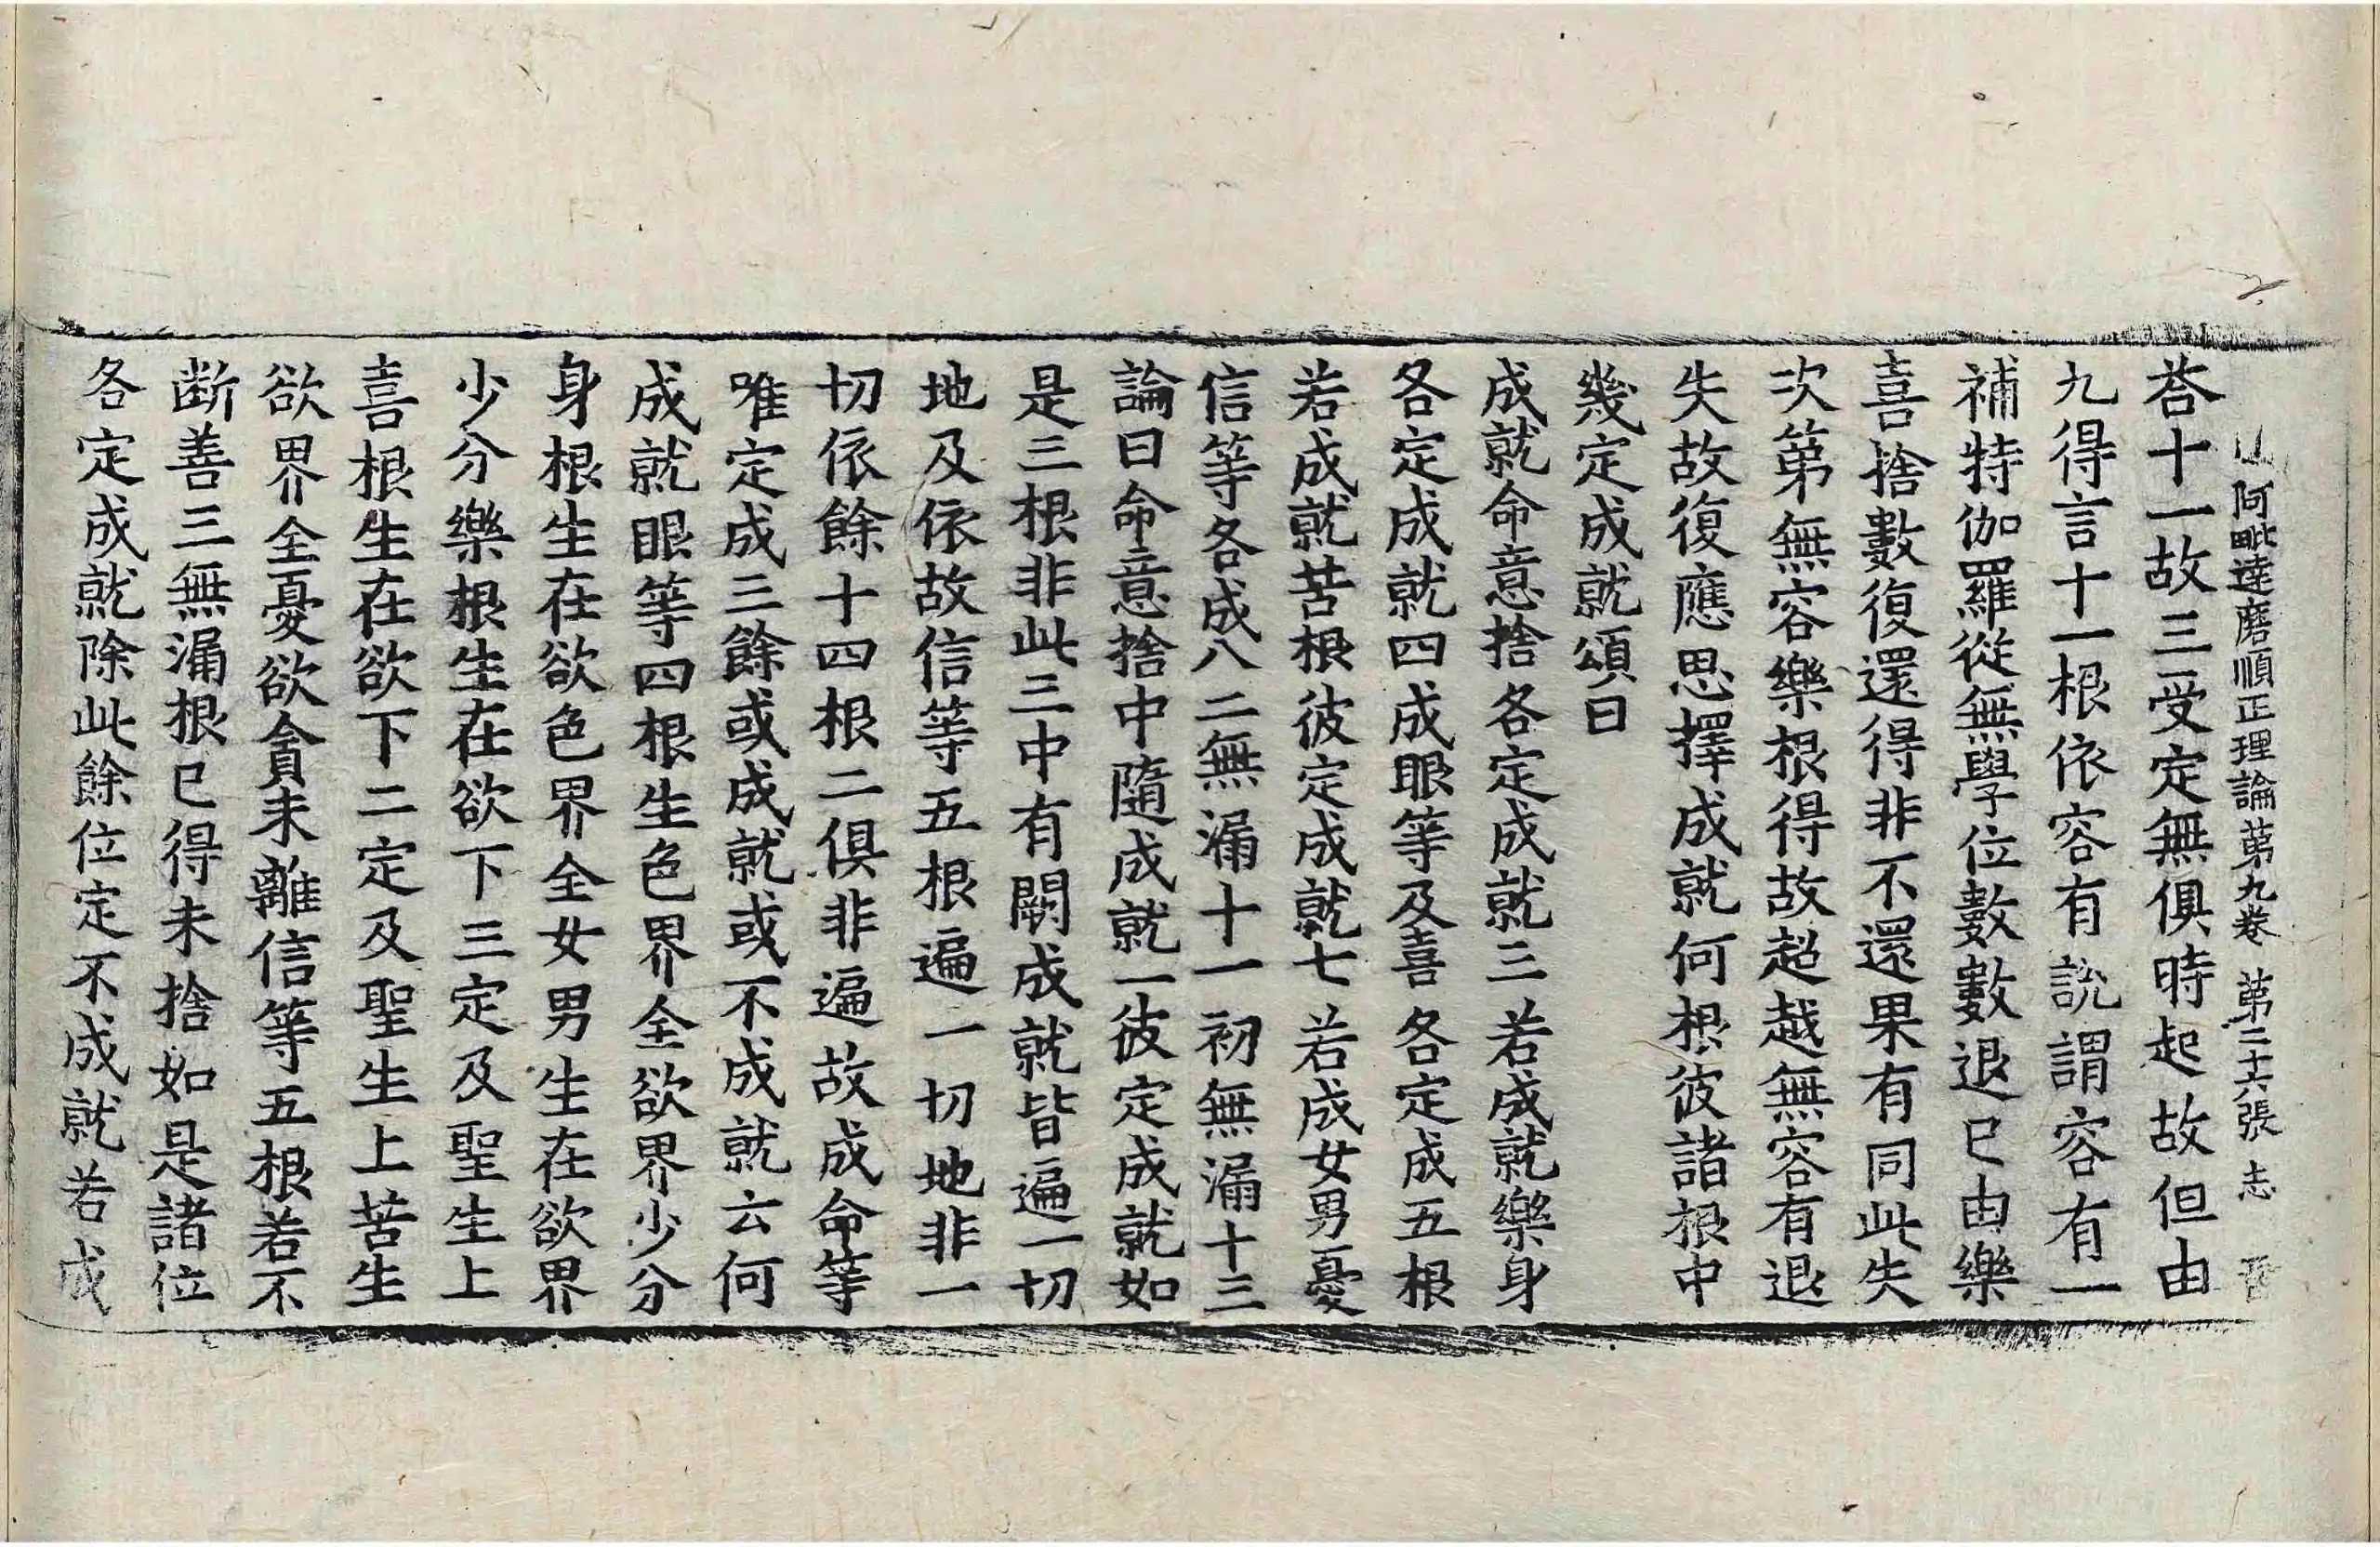 阿毗達磨順正理論第九卷 第二十六張 志
荅十一故三受定無俱時起故但由
九得言十一根依容有說謂容有一
補特伽羅從無學位數數退已由樂
喜捨數復還得非不還果有同此失
次第無容樂根得故超越無容有退
失故復應思擇成就何根彼諸根中
幾定成就頌曰
成就命意捨各定成就三若成就樂身
各定成就四成眼等及喜各定成五根
若成就苦根彼定成就七若成女男憂
信等各成八二無漏十一初無漏十三
論曰命意捨中隨成就一彼定成就如
是三根非此三中有闕成就皆遍一切
地及依故信等五根遍一切地非一
切依餘十四根二俱非遍故成命等
唯定成三餘或成就或不成就云何
成就眼等四根生色界全欲界少分
身根生在欲色界全女男生在欲界
少分樂根生在欲下三定及聖生上
喜根生在欲下二定及聖生上苦生
欲界全憂欲貪未離信等五根若不
断善三無漏根已得未捨如是諸位
各定成就除此餘位定不成就若成